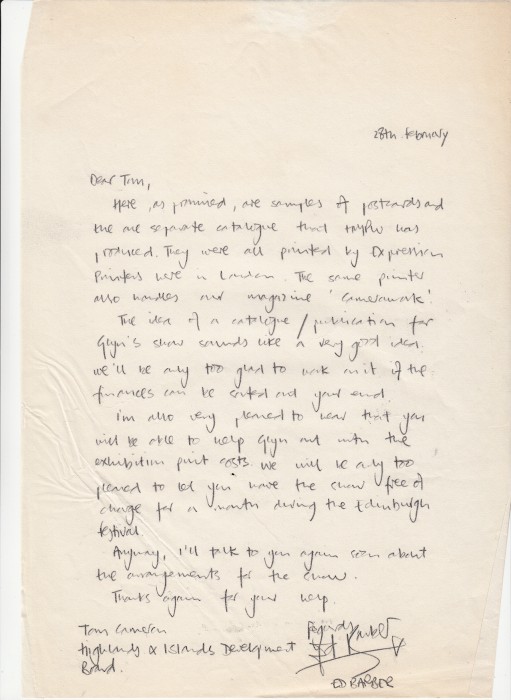 28th February
Dear Tom,
Here, as promised, are samples of postcards and
the one separate catalogue that has
produced. They were all printed by Expression
Printers here in London. The same printer
also handles our magazine 'Camerawork'.
The idea of a catalogue/publication for
Glyn's show sounds like a very good idea.
We'll be only too glad to work on it if the
finances can be sorted out your end.
I'm also very pleased to hear that you
will be able to help Glyn out with the
exhibition print costs. We will be only too
pleased to let you have the show free of
charge for a month during the Edinburgh
festival.
Anyway, I'll talk to you again soon about
the arrangements for the show.
Thanks again for your help.
Regards
Ed Barber
Tom Cameron
Highlands & Islands Development
Board.
ED BARBER